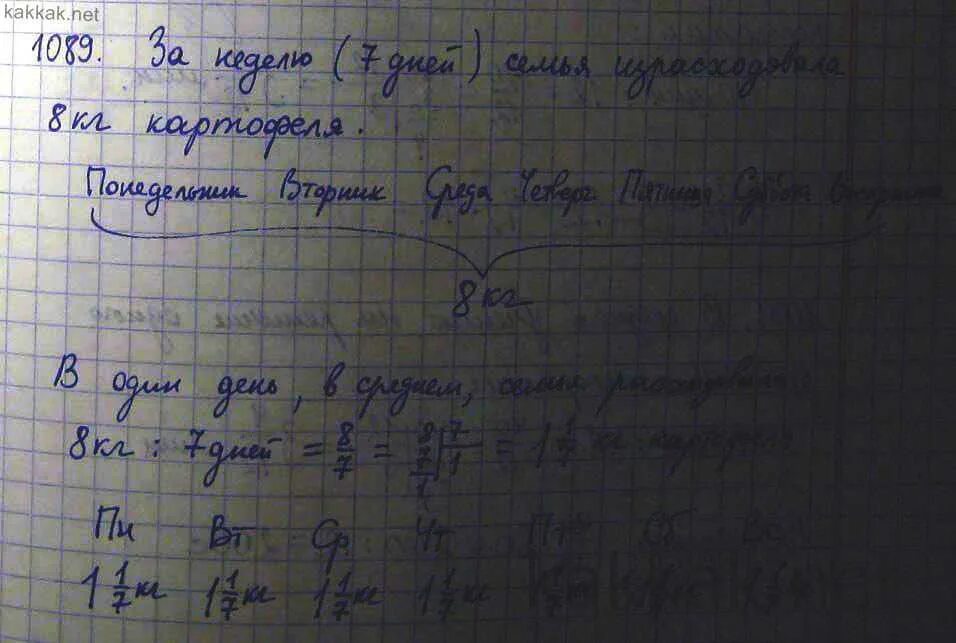 kakkak.net
1089. За неделю (7 дней) семья израсходовала
8кг картофеля.
Понедельник Вторник Среда Четверг Пятница Суббота
8кг
В один день, в среднем, семья расходовала
8кг : 7дней = 8/7 = 8 7 7 1 1 = 1 1/7 кг картофеля
Пн Вт Ср Чт Пт Сб Вс
1 1/7 кг 1 1/7 кг 1 1/7 кг 1 1/7 кг 1 1/7 кг